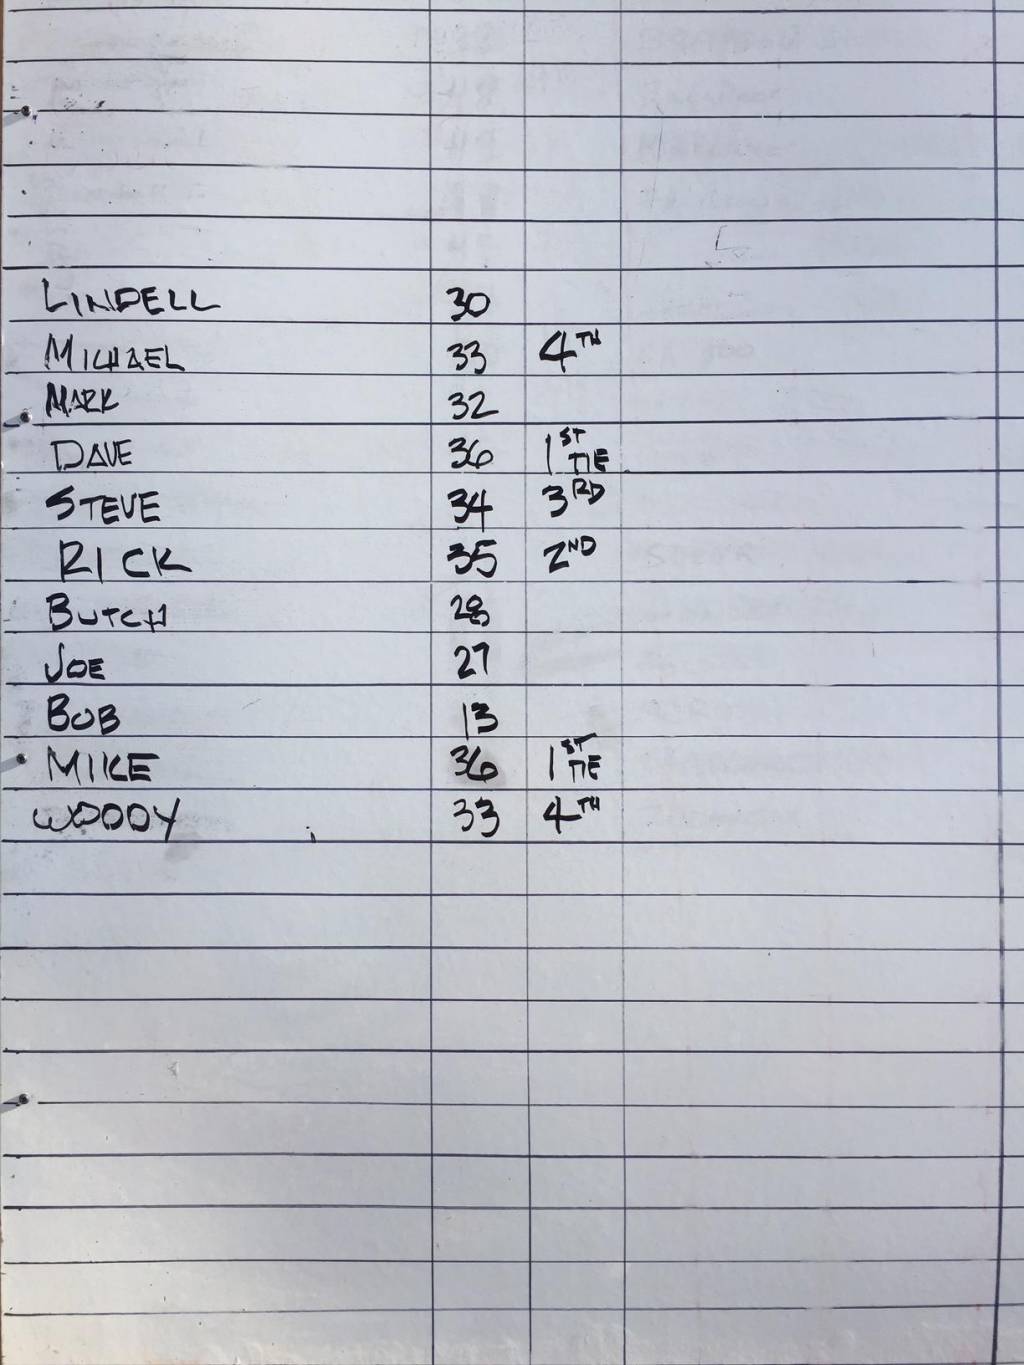 LINDELL 30
MICHAEL 33 4TH
MARK 32
DAVE 36 1ST TIE
STEVE 34 3RD
RICK 35 2ND
BUTCH 28
JOE 27
BOB 13
MIKE 36 1ST TIE
WOODY 33 4TH